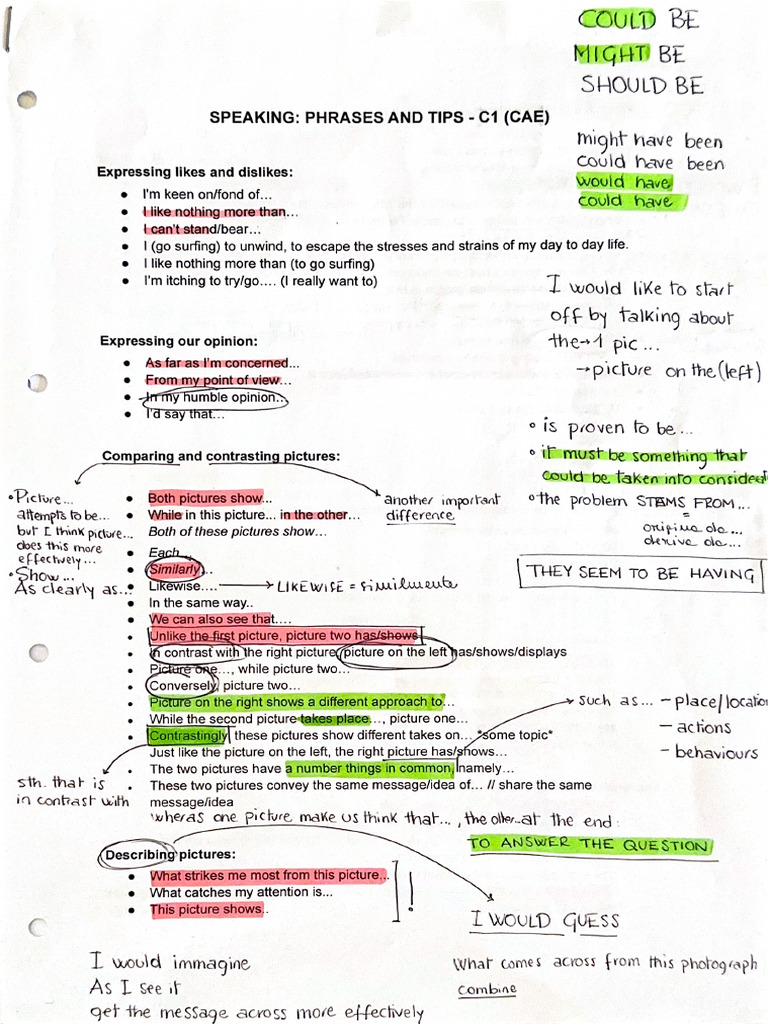 COULD BE
MIGHT BE
SHOULD BE
SPEAKING: PHRASES AND TIPS - C1 (CAE)
might have been
could have been
would have
could have
Expressing likes and dislikes:
● I'm keen on/fond of…
● I like nothing more than…
● I can't stand/bear…
● I (go surfing) to unwind, to escape the stresses and strains of my day to day life.
● I like nothing more than (to go surfing)
● I'm itching to try/go…. (I really want to)
I would like to start
off by talking about
the → 1 pic...
→ picture on the (left)
Expressing our opinion:
● As far as I'm concerned…
● From my point of view…
● In my humble opinion…
● I'd say that…
° is proven to be...
° it must be something that
could be taken into consider
° the problem STEMS FROM...
=
origina de...
deriva de...
THEY SEEM TO BE HAVING
Comparing and contrasting pictures:
° Picture...
attempts to be...
but I think picture...
does this more
effectively...
° Show...
As clearly as...
another important
difference
● Both pictures show…
● While in this picture... in the other…
Both of these pictures show…
● Each…
● Similarly…
● Likewise…. → LIKEWISE = similmente
● In the same way..
● We can also see that….
● Unlike the first picture, picture two has/shows
● In contrast with the right picture, picture on the left has/shows/displays
● Picture one…, while picture two…
● Conversely, picture two…
● Picture on the right shows a different approach to…
● While the second picture takes place…, picture one…
● Contrastingly, these pictures show different takes on… *some topic*
● Just like the picture on the left, the right picture has/shows…
● The two pictures have a number things in common, namely…
● These two pictures convey the same message/idea of… // share the same
message/idea
such as... - place/location
- actions
- behaviours
sth. that is
in contrast with
wheras one picture make us think that..., the other...at the end:
TO ANSWER THE QUESTION
Describing pictures:
● What strikes me most from this picture…
● What catches my attention is…
● This picture shows..
!
I WOULD GUESS
I would immagine
As I see it
get the message across more effectively
What comes across from this photograph
combine